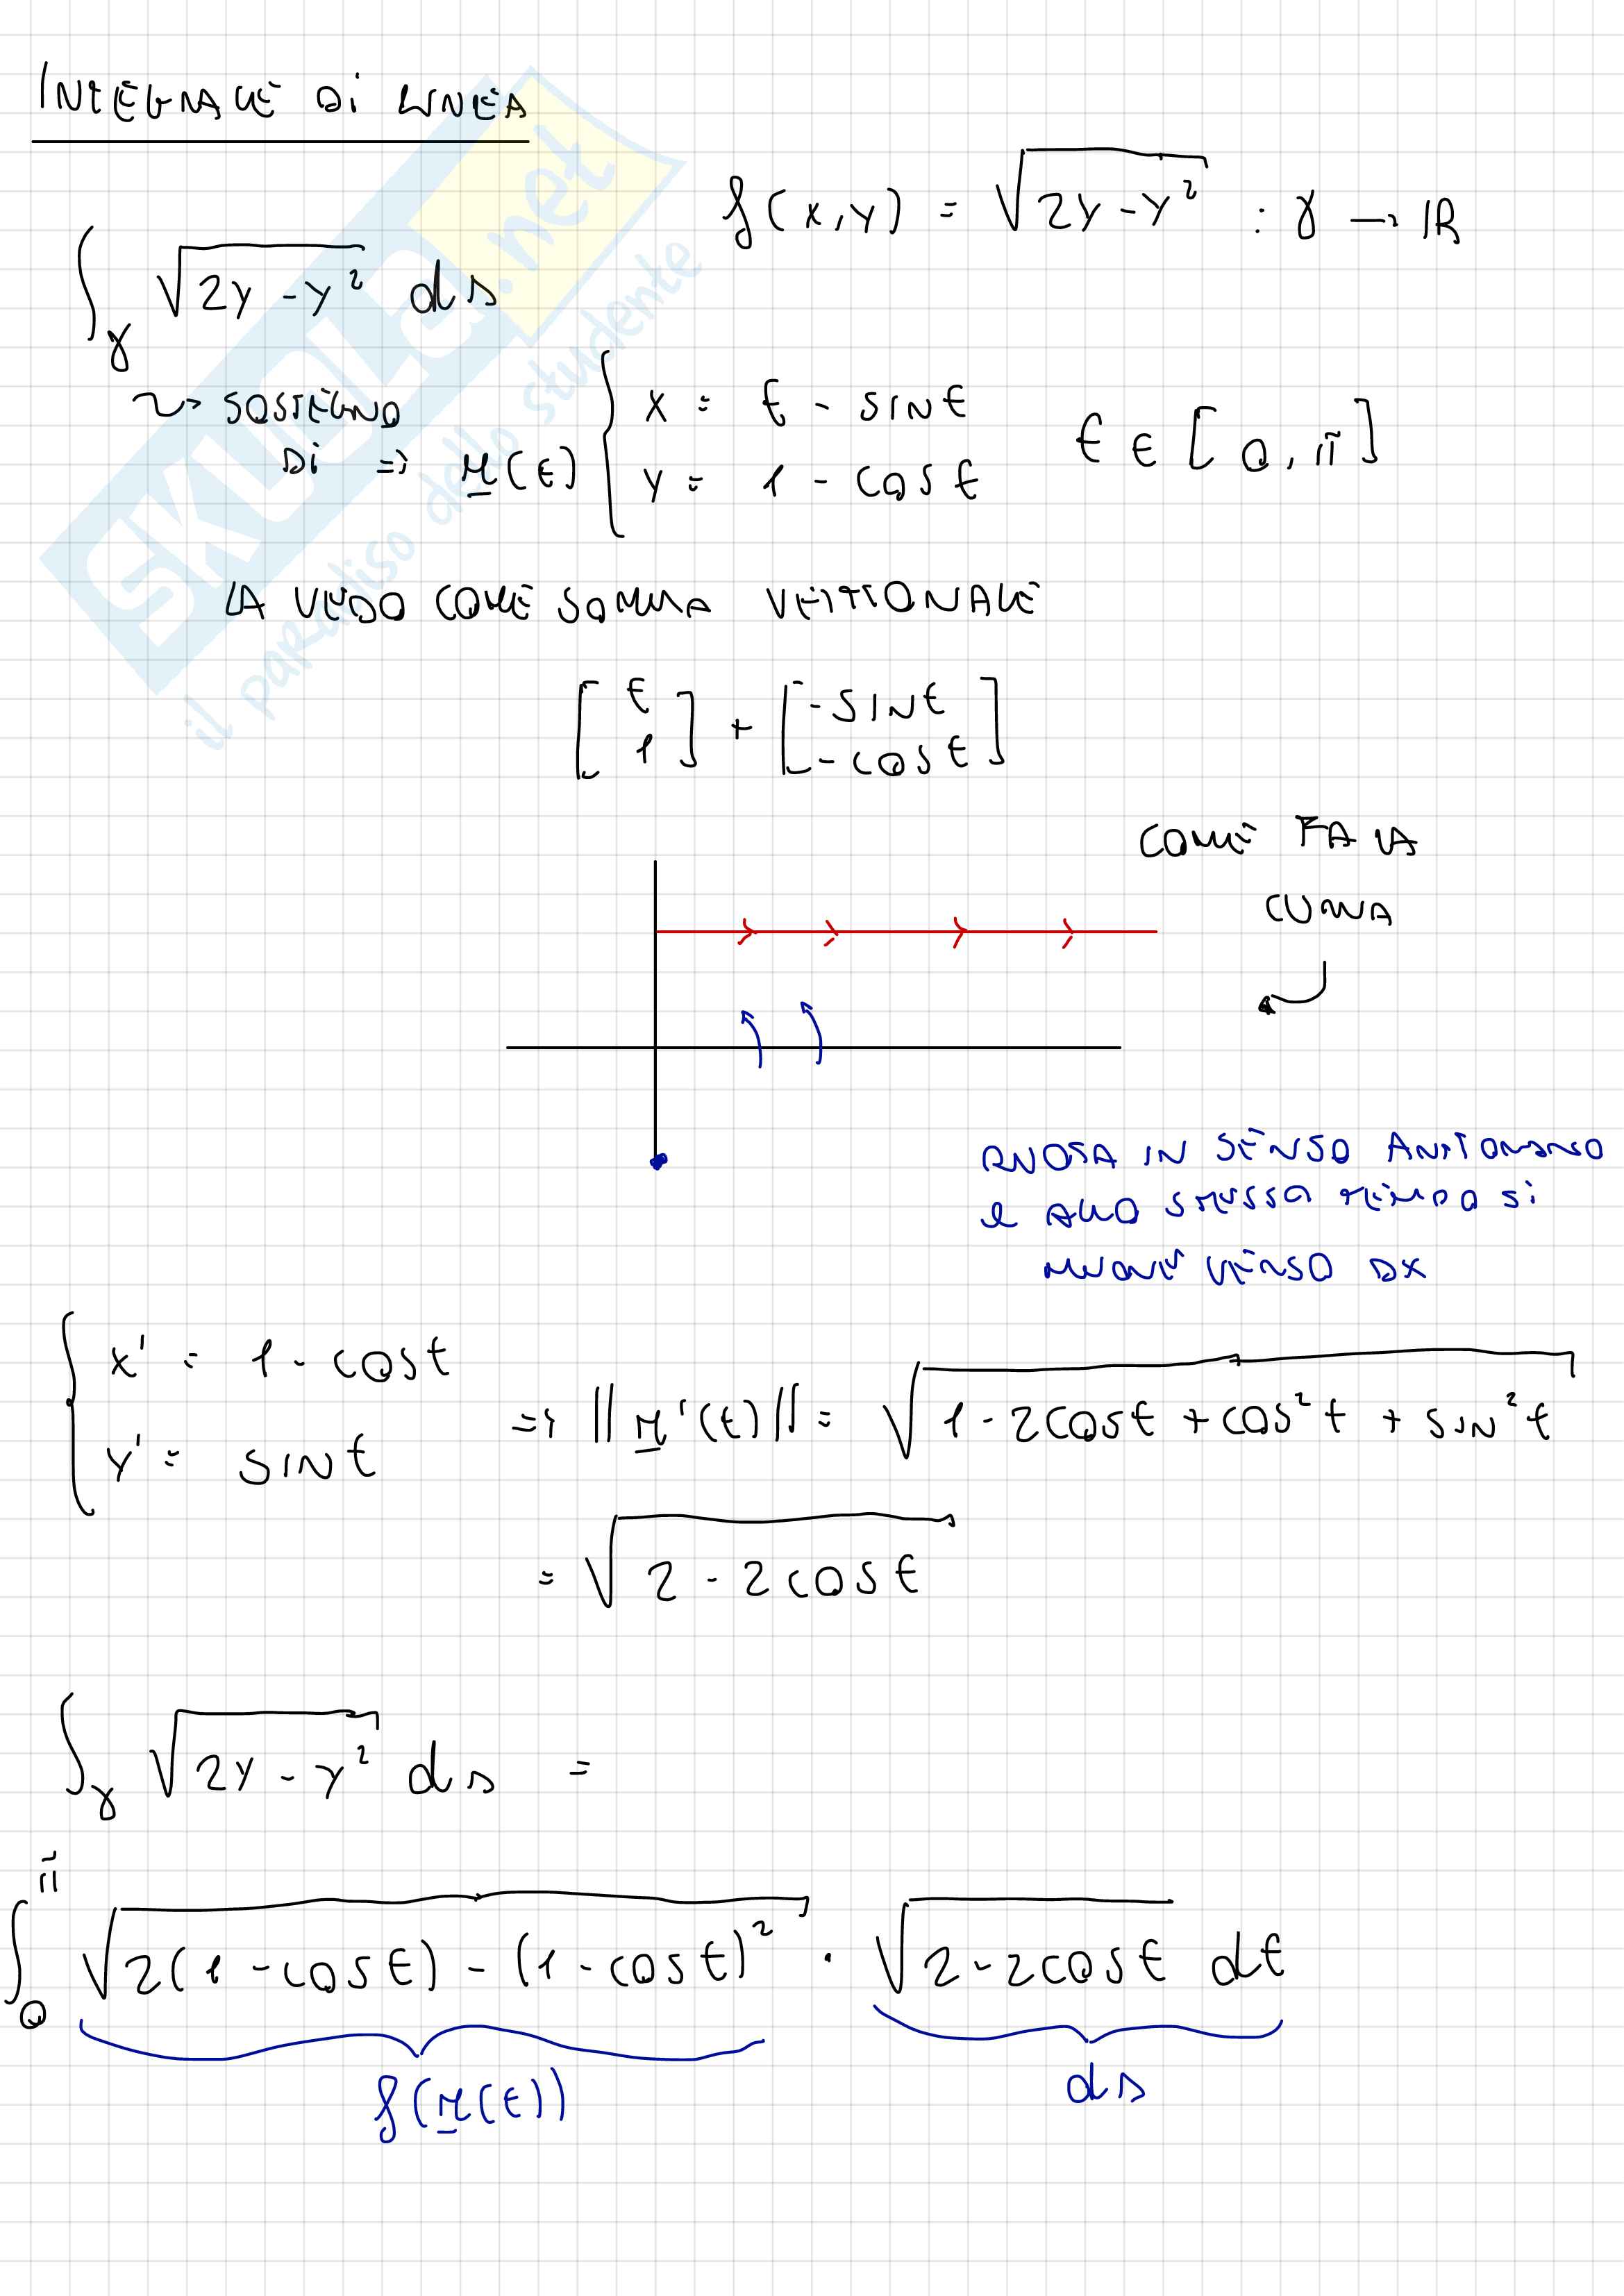 INTEGRALE DI LINEA
f(x,y) = √(2y-y²) : γ → ℝ
∫_γ √(2y-y²) ds
~> SOSTEGNO
DI => r(t) { x = t - sint
y = 1 - cost
t ∈ [0,π]
LA VEDO COME SOMMA VETTORIALE
[t 1] + [-sint -cost]
COME FA LA
CURVA
RUOTA IN SENSO ANTIORARIO
e ALLO STESSO TEMPO SI
MUOVE VERSO DX
{ x' = 1 - cost
y' = sint
=> ||r'(t)|| = √(1 - 2cost + cos²t + sin²t)
= √(2 - 2cost)
∫_γ √(2y-y²) ds =
∫_0^π √(2(1-cost) - (1-cost)²) · √(2-2cost) dt
f(r(t))
ds
SKUOLA.net
il paradiso dello studente